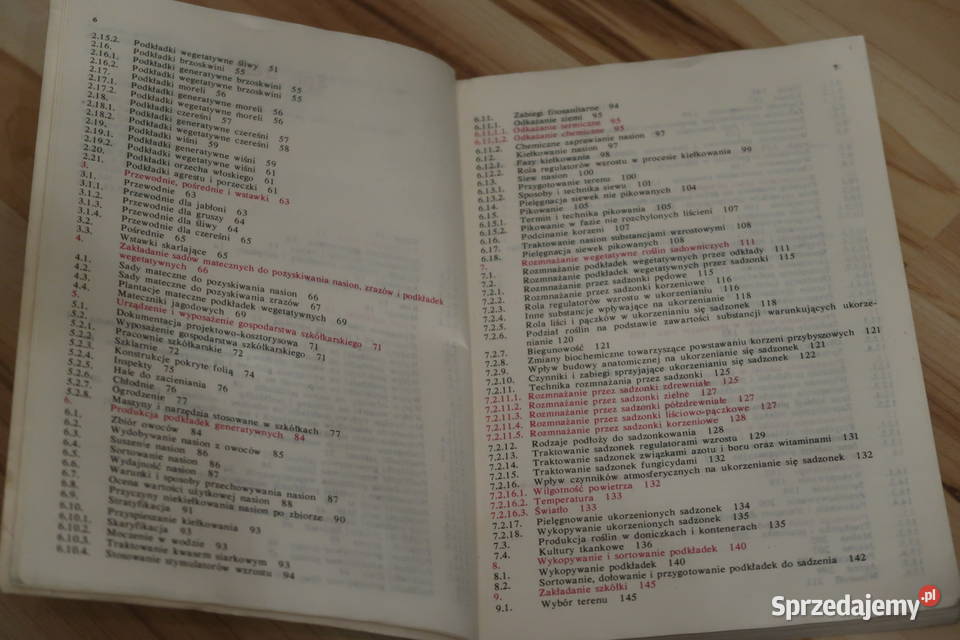 6
2.15.2. Podkładki wegetatywne śliwy 51
2.16. Podkładki brzoskwini 55
2.16.1. Podkładki generatywne brzoskwini 55
2.16.2. Podkładki wegetatywne brzoskwini 55
2.17. Podkładki moreli 56
2.17.1. Podkładki generatywne moreli 56
2.17.2. Podkładki wegetatywne moreli 56
2.18. Podkładki czereśni 57
2.18.1. Podkładki generatywne czereśni 57
2.18.2. Podkładki wegetatywne czereśni 58
2.19. Podkładki wiśni 59
2.19.1. Podkładki generatywne wiśni 59
2.19.2. Podkładki wegetatywne wiśni 61
2.20. Podkładki orzecha włoskiego 61
2.21. Podkładki agrestu i porzeczki 61
3. Przewodnie, pośrednie i wstawki 63
3.1. Przewodnie 63
3.1.1. Przewodnie dla jabłoni 63
3.1.2. Przewodnie dla gruszy 64
3.1.3. Przewodnie dla śliwy 64
3.1.4. Przewodnie dla czereśni 65
3.2. Pośrednie 65
3.3. Wstawki skarlające 65
4. Zakładanie sadów matecznych do pozyskiwania nasion, zrazów i podkładek
wegetatywnych 66
4.1. Sady mateczne do pozyskiwania nasion 66
4.2. Sady mateczne do pozyskiwania zrazów 66
4.3. Plantacje mateczne podkładek wegetatywnych 69
4.4. Mateczniki jagodowych 69
5. Urządzenie i wyposażenie gospodarstwa szkółkarskiego 71
5.1. Dokumentacja projektowo-kosztorysowa 71
5.2. Wyposażenie gospodarstwa szkółkarskiego 71
5.2.1. Pracownie szkółkarskie 72
5.2.2. Szklarnie 72
5.2.3. Konstrukcje pokryte folią 74
5.2.4. Inspekty 75
5.2.5. Hale do zacieniania 76
5.2.6. Chłodnie 76
5.2.7. Ogrodzenie 77
5.2.8. Maszyny i narzędzia stosowane w szkółkach 77
6. Produkcja podkładek generatywnych 84
6.1. Zbiór owoców 84
6.2. Wydobywanie nasion z owoców 85
6.3. Suszenie nasion 86
6.4. Sortowanie nasion 86
6.5. Wydajność nasion 87
6.6. Warunki i sposoby przechowywania nasion 87
6.7. Ocena wartości użytkowej nasion 88
6.8. Przyczyny niekiełkowania nasion po zbiorze 90
6.9. Stratyfikacja 91
6.10. Przyspieszanie kiełkowania 93
6.10.1. Skaryfikacja 93
6.10.2. Moczenie w wodzie 93
6.10.3. Traktowanie kwasem siarkowym 93
6.10.4. Stosowanie stymulatorów wzrostu 94
6.11. Zabiegi fitosanitarne 94
6.11.1. Odkażanie ziemi 95
6.11.1.1. Odkażanie termiczne 95
6.11.1.2. Odkażanie chemiczne 95
6.11.2. Chemiczne zaprawianie nasion 97
6.12. Kiełkowanie nasion 97
6.12.1. Fazy kiełkowania 98
6.12.2. Rola regulatorów wzrostu w procesie kiełkowania 99
6.13. Siew nasion 100
6.13.1. Przygotowanie terenu 100
6.13.2. Sposoby i technika siewu 101
6.14. Pielęgnacja siewek nie pikowanych 104
6.15. Pikowanie 105
6.15.1. Termin i technika pikowania 105
6.15.2. Pikowanie w fazie nie rozchylonych liścieni 107
6.16. Podcinanie korzeni 107
6.17. Traktowanie nasion substancjami wzrostowymi 108
6.18. Pielęgnacja siewek pikowanych 108
7. Rozmnażanie wegetatywne roślin sadowniczych 111
7.1. Rozmnażanie podkładek wegetatywnych przez odkłady 111
7.2. Rozmnażanie podkładek wegetatywnych przez sadzonki 115
7.2.1. Rozmnażanie przez sadzonki pędowe 115
7.2.2. Rozmnażanie przez sadzonki korzeniowe 116
7.2.3. Rola regulatorów wzrostu w ukorzenianiu 116
7.2.4. Inne substancje wpływające na ukorzenianie 118
7.2.5. Rola liści i pączków w ukorzenianiu się sadzonek 118
7.2.6. Podział roślin na podstawie zawartości substancji warunkujących ukorze-
nianie 120
7.2.7. Biegunowość 121
7.2.8. Zmiany biochemiczne towarzyszące powstawaniu korzeni przybyszowych 121
7.2.9. Wpływ budowy anatomicznej na ukorzenianie się sadzonek 121
7.2.10. Czynniki i zabiegi sprzyjające ukorzenianiu się sadzonek 122
7.2.11. Technika rozmnażania przez sadzonki 125
7.2.11.1. Rozmnażanie przez sadzonki zdrewniałe 125
7.2.11.2. Rozmnażanie przez sadzonki zielne 127
7.2.11.3. Rozmnażanie przez sadzonki półzdrewniałe 127
7.2.11.4. Rozmnażanie przez sadzonki liściowo-pączkowe 127
7.2.11.5. Rozmnażanie przez sadzonki korzeniowe 128
7.2.12. Rodzaje podłoży do sadzonkowania 128
7.2.13. Traktowanie sadzonek regulatorami wzrostu 129
7.2.14. Traktowanie sadzonek związkami azotu i boru oraz witaminami 131
7.2.15. Traktowanie sadzonek fungicydami 132
7.2.16. Wpływ czynników atmosferycznych na ukorzenianie się sadzonek 132
7.2.16.1. Wilgotność powietrza 132
7.2.16.2. Temperatura 133
7.2.16.3. Światło 133
7.2.17. Pielęgnowanie ukorzenionych sadzonek 134
7.2.18. Wykopywanie ukorzenionych sadzonek 135
7.3. Produkcja roślin w doniczkach i kontenerach 135
7.4. Kultury tkankowe 136
8. Wykopywanie i sortowanie podkładek 140
8.1. Wykopywanie podkładek 140
8.2. Sortowanie, dołowanie i przygotowanie podkładek do sadzenia 142
9. Zakładanie szkółki 145
9.1. Wybór terenu 145
Sprzedajemy.pl